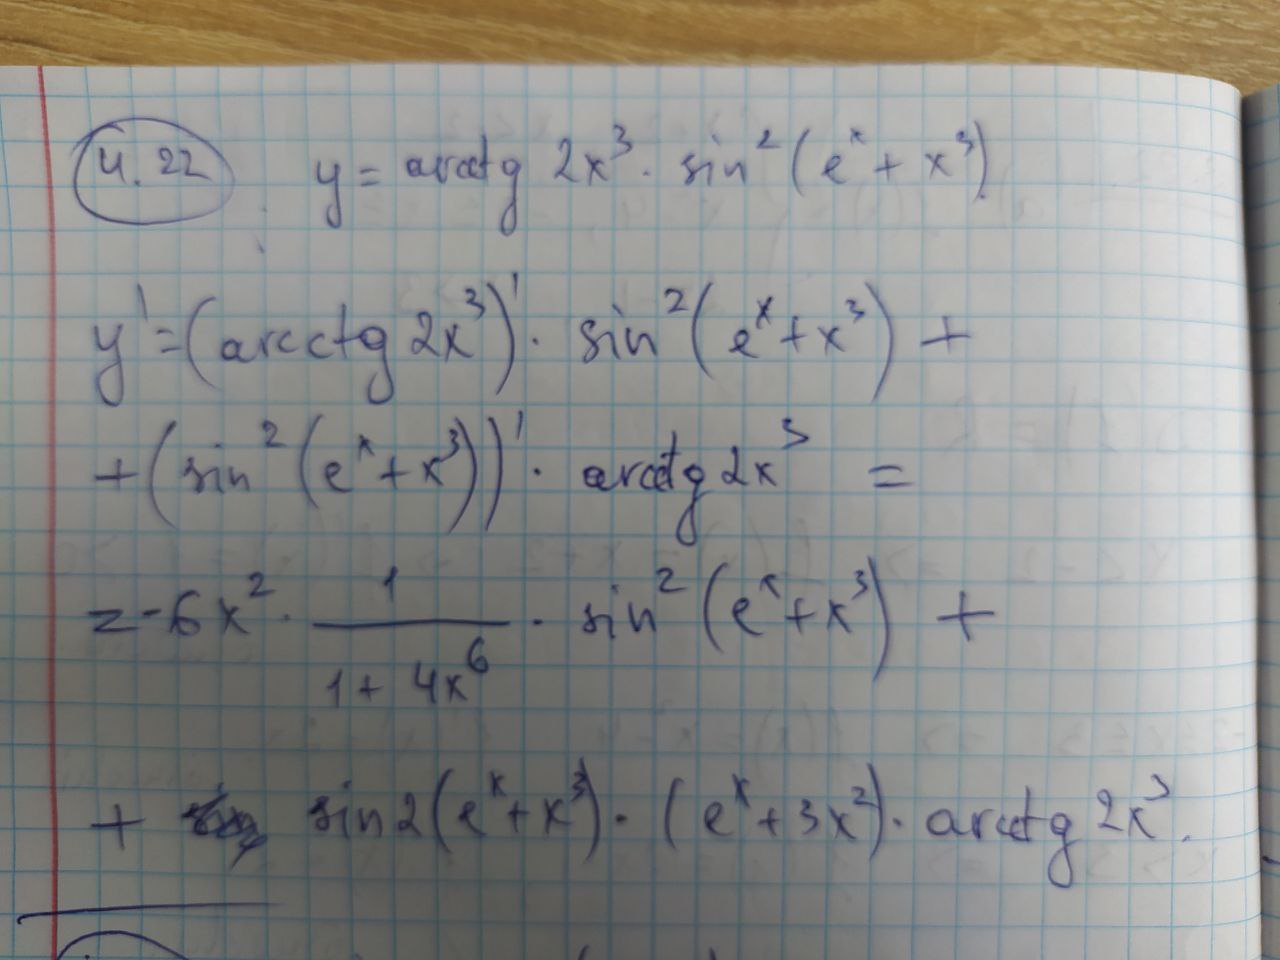 4.22 y = arcctg 2x³ · sin² (eˣ + x³)
y' = (arcctg 2x³)' · sin² (eˣ + x³) +
+ (sin² (eˣ + x³))' · arcctg 2x³ =
= -6x² · 1/(1 + 4x⁶) · sin² (eˣ + x³) +
+ sin 2 (eˣ + x³) · (eˣ + 3x²) · arcctg 2x³.